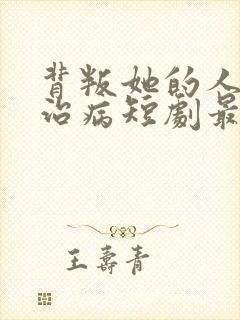 背叛她的人
治病短劇最
王壽青